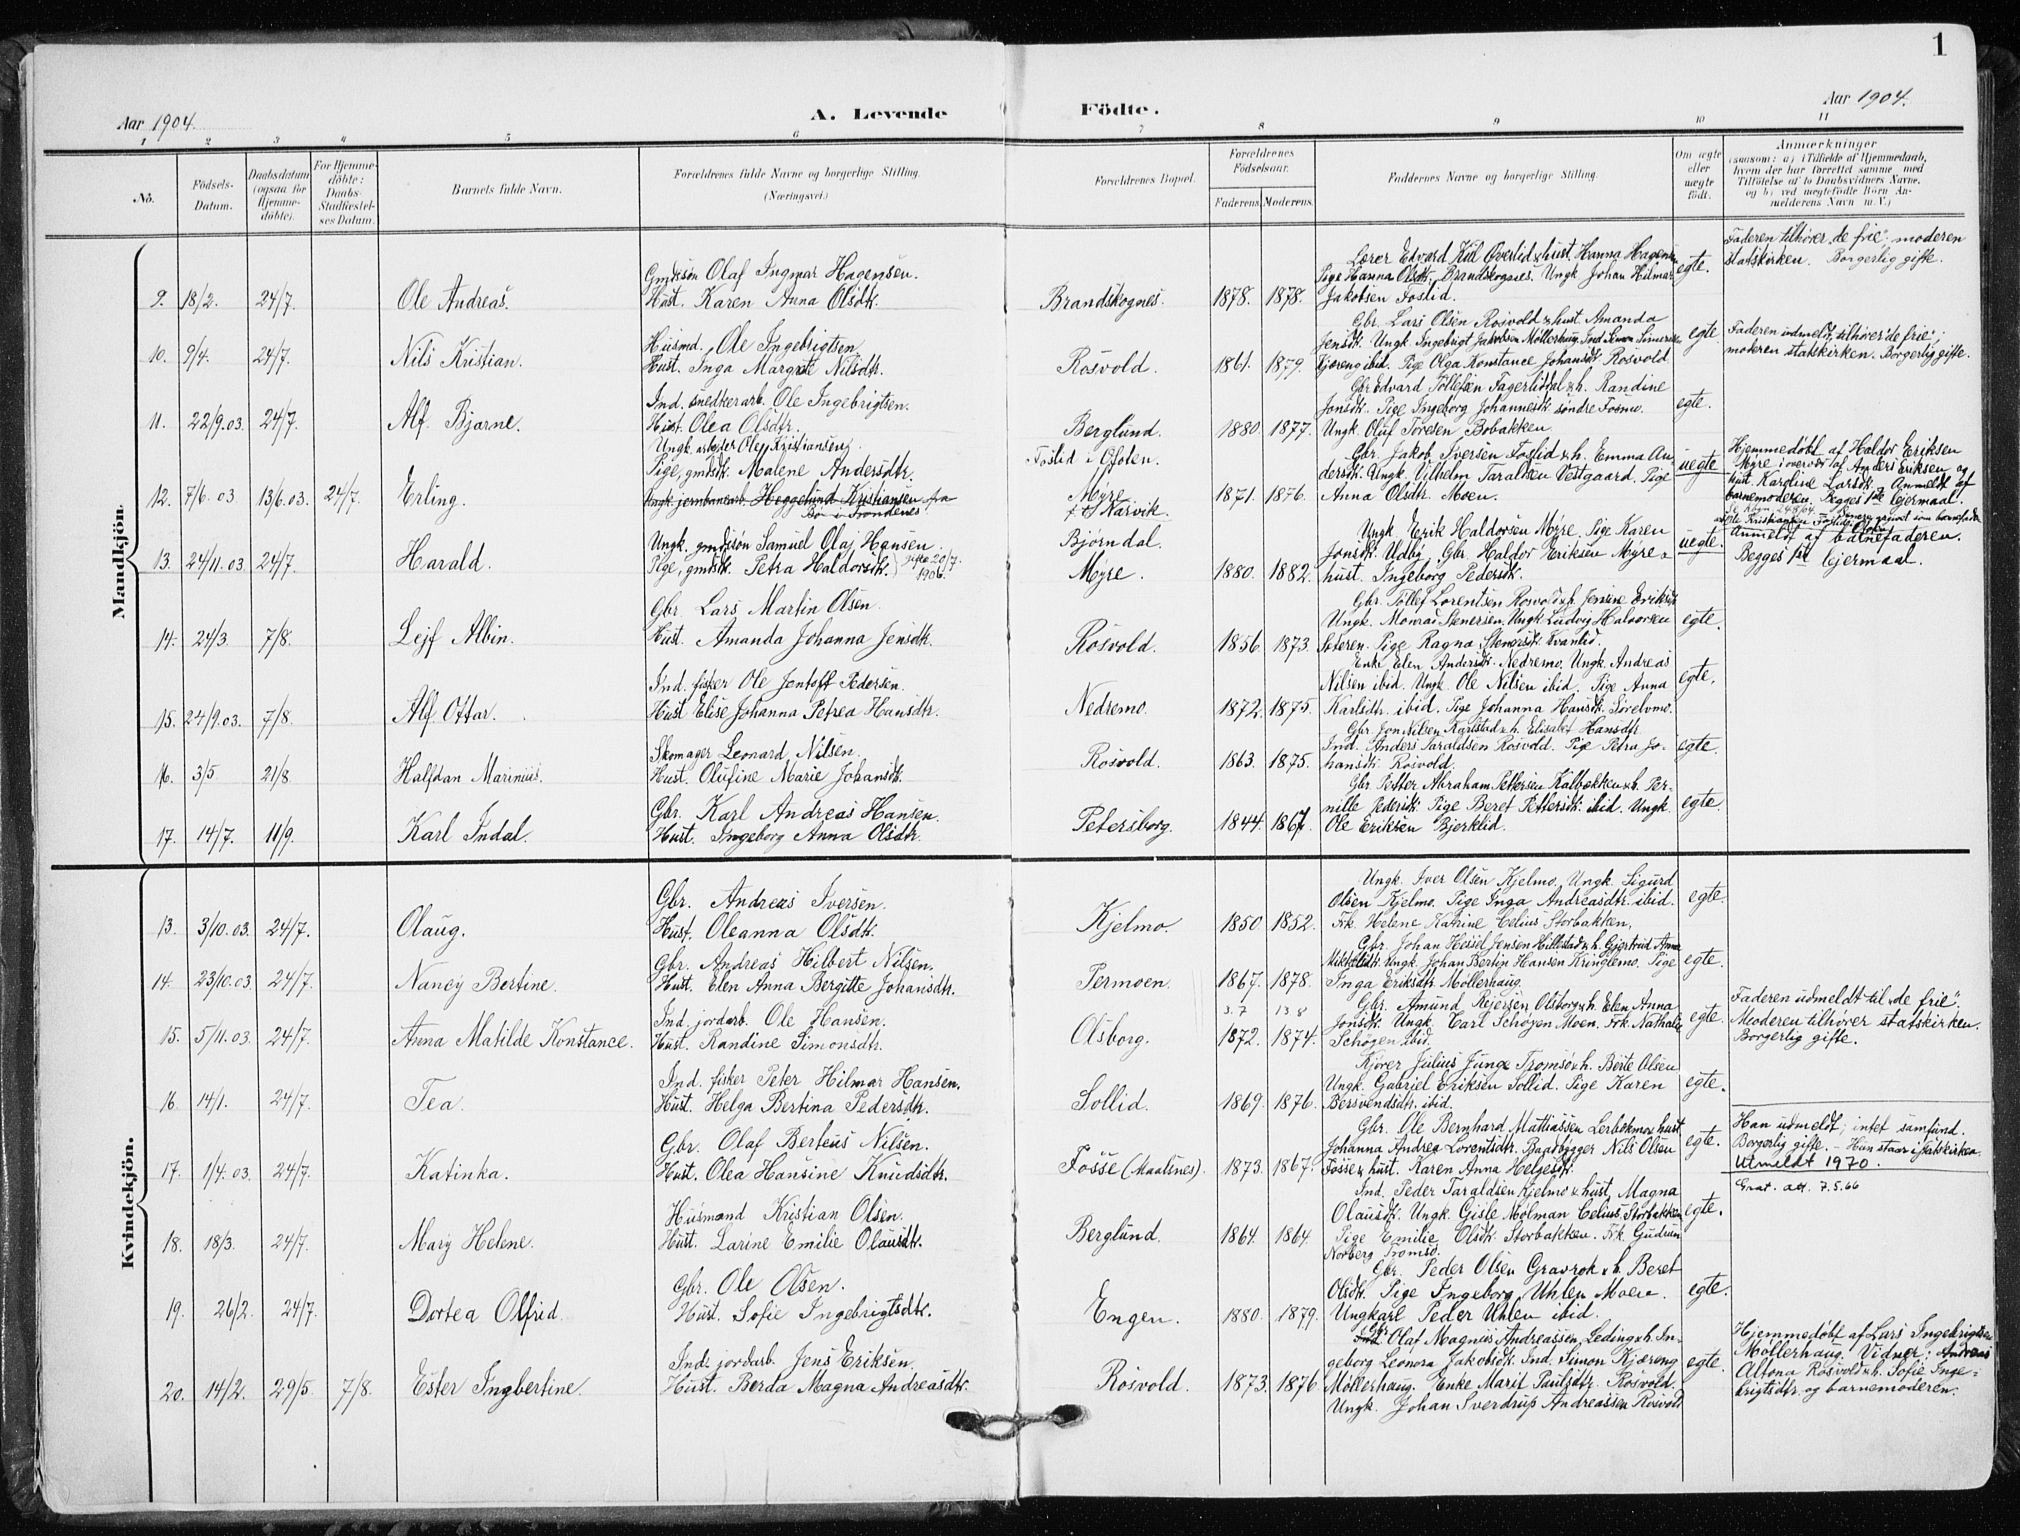 1
Aar 1904.
A. Levende
Födte.
Aar 1904.
1 2 3 4 5 6 7 8 9 10 11
No.
Födsels-Datum.
Daabsdatum (ogsaa for Hjemmedöbte).
For Hjemmedöbte: Daabs-Stadfæstelses Datum.
Barnets fulde Navn.
Forældrenes fulde Navne og borgerlige Stilling.
(Næringsvei.)
Forældrenes Bopæl.
Forældrenes Födselsaar.
Faderens. Moderens.
Faddernes Navne og borgerlige Stilling.
Om ægte eller uægte födt.
Anmærkninger
(saasom: a) i Tilfælde af Hjemmedaab,
hvem der har forrettet samme, med
Tilföielse af to Daabsvidners Navne,
og b) ved uægtefödte Börn Anmelderens Navn m. V.)
Mandkjön.
Gmdssön Olaf Ingmar Hagensen.
9. 18/2. 24/7. Ole Andreas. Hust. Karen Anna Olsdtr. Brandskognes. 1878. 1878.
Lærer Edvard Kiil Overlid & hust. Hanna Hagensen
Pige Hanna Olsdtr. Brandskognes. Ungk. Johan Hilmar
Jakobsen Foslid.
egte.
Faderen tilhører "de frie"; moderen
statskirken. Borgerlig gifte.
Husmd. Ole Ingebrigtsen
10. 9/4. 24/7. Nils Kristian. Hust. Inga Margrete Nilsdtr. Rosvold. 1861. 1879.
Gbr. Lars Olsen Rosvold & hust. Amanda
Jensdtr. Ungk. Ingebrigt Jakobsen Møllerhaug. Ind. Simon Simonsen
Kjæreng ibid. Pige Olga Konstance Johansdtr. Rosvold
egte
Faderen udmeldt, tilhører "de frie";
moderen statskirken. Borgerlig gifte.
Ind. snedkerarb. Ole Ingebrigtsen.
11. 22/9.03. 24/7. Alf Bjarne. Hust. Olea Olsdtr. Berglund. 1880. 1877.
Gbr. Edvard Tollefsen Fagerliddal & h. Randine
Jonsdtr. Pige Ingeborg Johannesdtr. søndre Fosmo.
Ungk. Oluf Toresen Bobakken
egte.
Ungk. arbeider Olaj Kristiansen, Foslid i Ofoten.
Pige, gmdsdtr. Malene Andersdtr.
12. 7/6. 03 13/6.03. 24/7. Erling. Ungk. jernbanearb. Heggelund Kristiansen fra
Bø i Trondenes. Myre
f. t. Narvik. 1871. 1876.
Gbr. Jakob Iversen Foslid & h. Emma Andersdtr. Ungk. Vilhelm Taraldsen Vestgaard. Pige
Anna Olsdtr. Moen.
uegte
Hjemmedøbt af Haldor Eriksen
Myre i overvær af Anders Eriksen og
hust. Karoline Larsdtr. Anmeldt af
barnemoderen. Begges 1ste lejermaal.
Ungk. gmdssøn Samuel Olaj Hansen. Bjørndal.
13. 24/11.03. 24/7. Harald. Pige, gmdsdtr. Petra Haldorsdtr. gifte 20/7 1906. Myre. 1880. 1882.
Ungk. Erik Haldorsen Myre. Pige Karen
Jonsdtr. Udby. Gbr. Haldor Eriksen Myre &
hust. Ingeborg Pedersdtr.
uegte.
Anmeldt af barnefaderen.
Begges 1ste lejermaal.
Gbr. Lars Martin Olsen.
14. 24/3. 7/8. Lejf Albin. Hust. Amanda Johanna Jensdtr. Rosvold. 1856. 1873.
Gbr. Tollef Lorentsen Rosvold & h. Jensine Eriksdtr
Ungk. Monrai Stenersen. Ungk. Ludvig Halvorsen
Sæteren. Pige Ragna Stenersdtr. Kvanlid.
egte.
Ind. fisker Ole Jentoft Pedersen.
15. 24/9.03. 7/8. Alf Ottar. Hust. Elise Johanna Petrea Hansdtr. Nedremo. 1872. 1875.
Enke Elen Andersdtr. Nedremo. Ungk. Andreas
Nilsen ibid. Ungk. Ole Nilsen ibid. Pige Anna
Karlsdtr. ibid. Pige Johanna Hansdtr. Sørelvmo.
egte.
Skomager Leonard Nilsen.
16. 3/5 21/8 Halfdan Marinius. Hust. Olufine Marie Johansdtr. Rosvold. 1863. 1875.
Gbr. Jon Nilsen Karlstad & h. Elisabet Hansdtr.
Ind. Anders Taraldsen Rosvold. Pige Petra Johansdtr. Rosvold.
egte.
Gbr. Karl Andreas Hansen.
17. 14/7. 11/9. Karl Indal. Hust. Ingeborg Anna Olsdtr. Petersborg. 1844. 1867.
Gbr. Petter Abraham Pettersen Kalbækken & h. Pernille Pedersdtr. Pige Beret Pettersdtr. ibid. Ungk.
Ole Eriksen Bjerklid.
egte.
Kvindekjön.
Gbr. Andreas Iversen.
13. 3/10.03. 24/7. Olaug. Hust. Oleanna Olsdtr. Kjelmo. 1850. 1852.
Ungk. Iver Olsen Kjelmo. Ungk. Sigurd
Olsen Kjelmo. Pige Inga Andreasdtr. ibid.
Frk. Helene Katrine Celius Storbakken.
egte.
Gbr. Andreas Hilbert Nilsen.
14. 23/10.03. 24/7. Nancy Bertine. Hust. Elen Anna Bergitte Johansdtr. Permoen. 1867. 1878.
Gbr. Johan Hessel Jensen Hillestad & h. Gjertrud Anna
Mikkelsdtr. Ungk. Johan Bertin Hansen Kringlemo. Pige
Inga Eriksdtr. Møllerhaug.
egte.
Ind. jordarb. Ole Hansen. 3.7 13 8
15. 5/11.03. 24/7. Anna Matilde Konstance. Hust. Randine Simonsdtr. Olsborg. 1872. 1874.
Gbr. Amund Rejersen Olsborg & h. Elen Anna
Jonsdtr. Ungk. Carl Schøgen Moen. Frk. Nathalie
Schøgen ibid.
egte.
Faderen udmeldt til "de frie".
Moderen tilhører statskirken.
Borgerlig gifte.
Ind. fisker Peter Hilmar Hansen.
16 14/1. 24/7. Tea. Hust. Helga Bertina Pedersdtr. Sollid. 1869. 1876.
Kjører Julius Junge Tromsø & h. Berte Olsen
Ungk. Gabriel Eriksen Sollid. Pige Karen
Bersvendsdtr. ibid.
egte.
Gbr. Olaf Berteus Nilsen.
17. 1/4.03. 24/7. Katinka. Hust. Olea Hansine Knudsdtr. Fosse (Maalsnes). 1873. 1867.
Gbr. Ole Bernhard Mathiassen Lerbekmo & hust
Johanna Andrea Lorentsdtr. Baadbygger Nils Olsen
Fosse & hust. Karen Anna Helgesdtr.
egte.
Han udmeldt; intet samfund.
Borgerlig gifte. – Hun staar i statskirken.
Utmeldt 1970.
Grat. att. 7.5.66
Husmand Kristian Olsen.
18. 18/3. 24/7. Mary Helene. Hust. Larine Emilie Olausdtr. Berglund. 1864. 1864
Ind. Peder Taraldsen Kjelmo & hust. Magna
Olausdtr. Ungk. Gisle Molman Celius, Storbakken
Pige Emilie Olsdtr. Storbakken. Frk. Gudrun
Norberg Tromsø.
egte.
Gbr. Ole Olsen.
19. 26/2. 24/7. Dortea Olfrid. Hust. Sofie Ingebrigtsdtr. Engen. 1880. 1879.
Gbr. Peder Olsen Gravrok & h. Beret
Olsdtr. Pige Ingeborg Uhlen Moen.
Ungkarl Peder Uhlen ibid.
egte.
Ind. jordarb. Jens Eriksen.
20. 14/2. 29/5. 7/8. Ester Ingbertine. Hust. Berda Magna Andreasdtr. Rosvold. 1873. 1876
Gbr. Olaf Magnus Andreassen, Leding & h. Ingeborg Leonora Jakobsdtr. Ind. Simon Kjæreng
Møllerhaug. Enke Marit Paulsdtr. Rosvold.
Ungk. Johan Sverdrup Andreassen Rosvold
egte.
Hjemmedøbt af Lars Ingebrigtsen
Møllerhaug. Vidner: Andreas
Altona Rosvold & h. Sofie Ingebrigtsdtr. og barnemoderen.